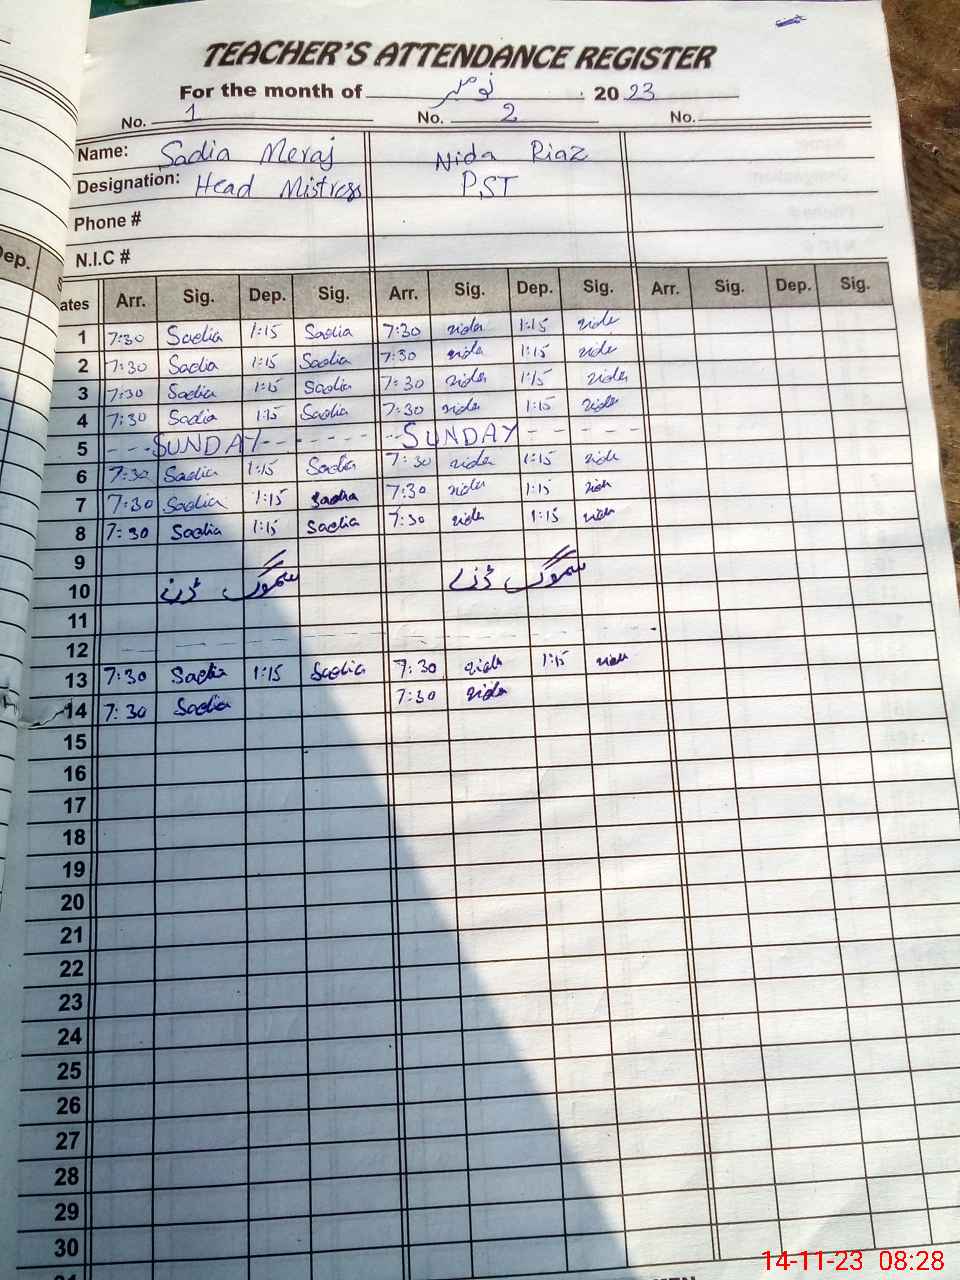 TEACHER'S ATTENDANCE REGISTER
For the month of نومبر 2023
No. 1 No. 2 No.
Name: Sadia Meraj Nida Riaz
Designation: Head Mistress PST
Phone #
N.I.C #
Dep. ates Arr. Sig. Dep. Sig. Arr. Sig. Dep. Sig. Arr. Sig. Dep. Sig.
1 7:30 Sadia 1:15 Sadia 7:30 nida 1:15 nida
2 7:30 Sadia 1:15 Sadia 7:30 nida 1:15 nida
3 7:30 Sadia 1:15 Sadia 7:30 nida 1:15 nida
4 7:30 Sadia 1:15 Sadia 7:30 nida 1:15 nida
5 SUNDAY SUNDAY
6 7:30 Sadia 1:15 Sadia 7:30 nida 1:15 nida
7 7:30 Sadia 1:15 Sadia 7:30 nida 1:15 nida
8 7:30 Sadia 1:15 Sadia 7:30 nida 1:15 nida
9
10 سموگ ڈے سموگ ڈے
11
12
13 7:30 Sadia 1:15 Sadia 7:30 nida 1:15 nida
14 7:30 Sadia 7:30 nida
15
16
17
18
19
20
21
22
23
24
25
26
27
28
29
30
14-11-23 08:28